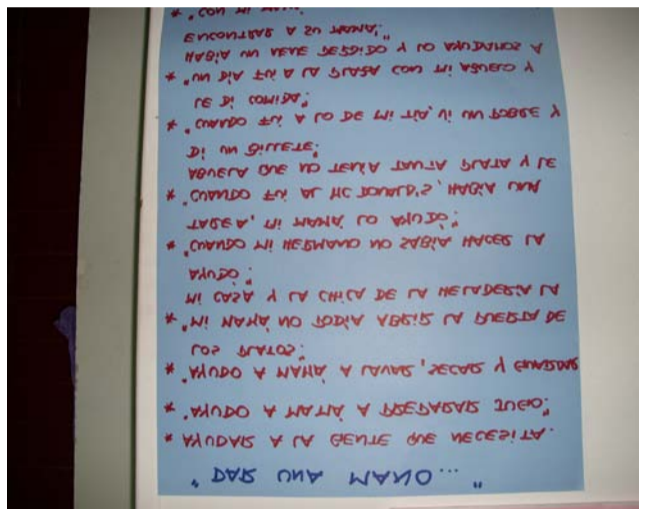 " DAR UNA MANO... "
* AYUDAR A LA GENTE QUE NECESITA.
* "AYUDO A MAMÁ A PREPARAR JUGO."
* "AYUDO A MAMÁ A LAVAR, SECAR Y GUARDAR
LOS PLATOS."
* "MI MAMÁ NO PODÍA ABRIR LA PUERTA DE
MI CASA Y LA CHICA DE LA HELADERÍA LA
AYUDÓ."
* "CUANDO MI HERMANO NO SABÍA HACER LA
TAREA, MI MAMÁ LO AYUDÓ."
* "CUANDO FUÍ AL MC DONALD'S, HABÍA UNA
ABUELA QUE NO TENÍA TANTA PLATA Y LE
DÍ UN BILLETE."
* "CUANDO FUÍ A LO DE MI TÍA, VÍ UN POBRE Y
LE DÍ COMIDA."
* "UN DÍA FUÍ A LA PLAZA CON MI ABUELO Y
HABÍA UN NENE PERDIDO Y LO AYUDAMOS A
ENCONTRAR A SU MAMÁ."
* "CON MI